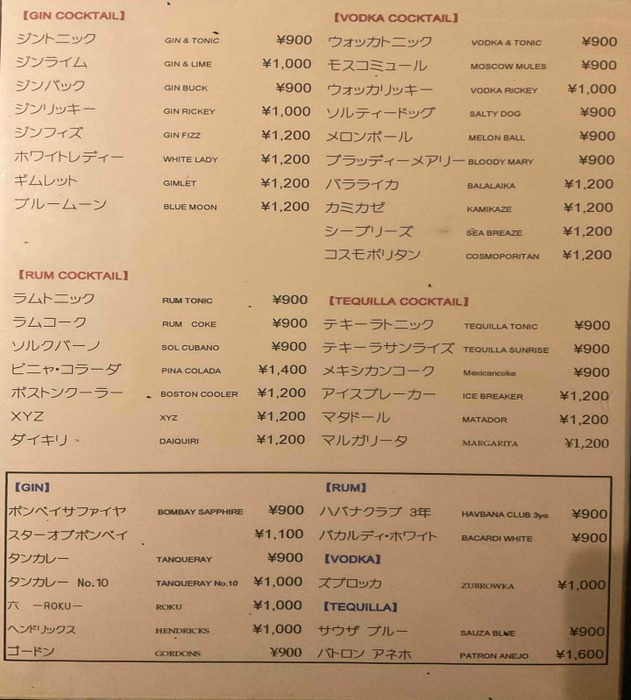 【GIN COCKTAIL】
ジントニック GIN & TONIC ¥900
ジンライム GIN & LIME ¥1,000
ジンバック GIN BUCK ¥900
ジンリッキー GIN RICKEY ¥1,000
ジンフィズ GIN FIZZ ¥1,200
ホワイトレディー WHITE LADY ¥1,200
ギムレット GIMLET ¥1,200
ブルームーン BLUE MOON ¥1,200
【RUM COCKTAIL】
ラムトニック RUM TONIC ¥900
ラムコーク RUM COKE ¥900
ソルクバーノ SOL CUBANO ¥900
ピニャ・コラーダ PINA COLADA ¥1,400
ボストンクーラー BOSTON COOLER ¥1,200
XYZ XYZ ¥1,200
ダイキリ DAIQUIRI ¥1,200
【VODKA COCKTAIL】
ウォッカトニック VODKA & TONIC ¥900
モスコミュール MOSCOW MULES ¥900
ウォッカリッキー VODKA RICKEY ¥1,000
ソルティードッグ SALTY DOG ¥900
メロンボール MELON BALL ¥900
ブラッディーメアリー BLOODY MARY ¥900
バラライカ BALALAIKA ¥1,200
カミカゼ KAMIKAZE ¥1,200
シーブリーズ SEA BREAZE ¥1,200
コスモポリタン COSMOPORITAN ¥1,200
【TEQUILLA COCKTAIL】
テキーラトニック TEQUILLA TONIC ¥900
テキーラサンライズ TEQUILLA SUNRISE ¥900
メキシカンコーク Mexicancoke ¥900
アイスブレーカー ICE BREAKER ¥1,200
マタドール MATADOR ¥1,200
マルガリータ MARGARITA ¥1,200
【GIN】
ボンベイサファイヤ BOMBAY SAPPHIRE ¥900
スターオブボンベイ ¥1,100
タンカレー TANQUERAY ¥900
タンカレー No.10 TANQUERAY No.10 ¥1,000
六 ーROKUー ROKU ¥1,000
ヘンドリックス HENDRICKS ¥1,000
ゴードン GORDONS ¥900
【RUM】
ハバナクラブ 3年 HAVBANA CLUB 3yo ¥900
バカルディ・ホワイト BACARDI WHITE ¥900
【VODKA】
ズブロッカ ZUBROWKA ¥1,000
【TEQUILLA】
サウザ ブルー SAUZA BLUE ¥900
パトロン アネホ PATRON ANEJO ¥1,600